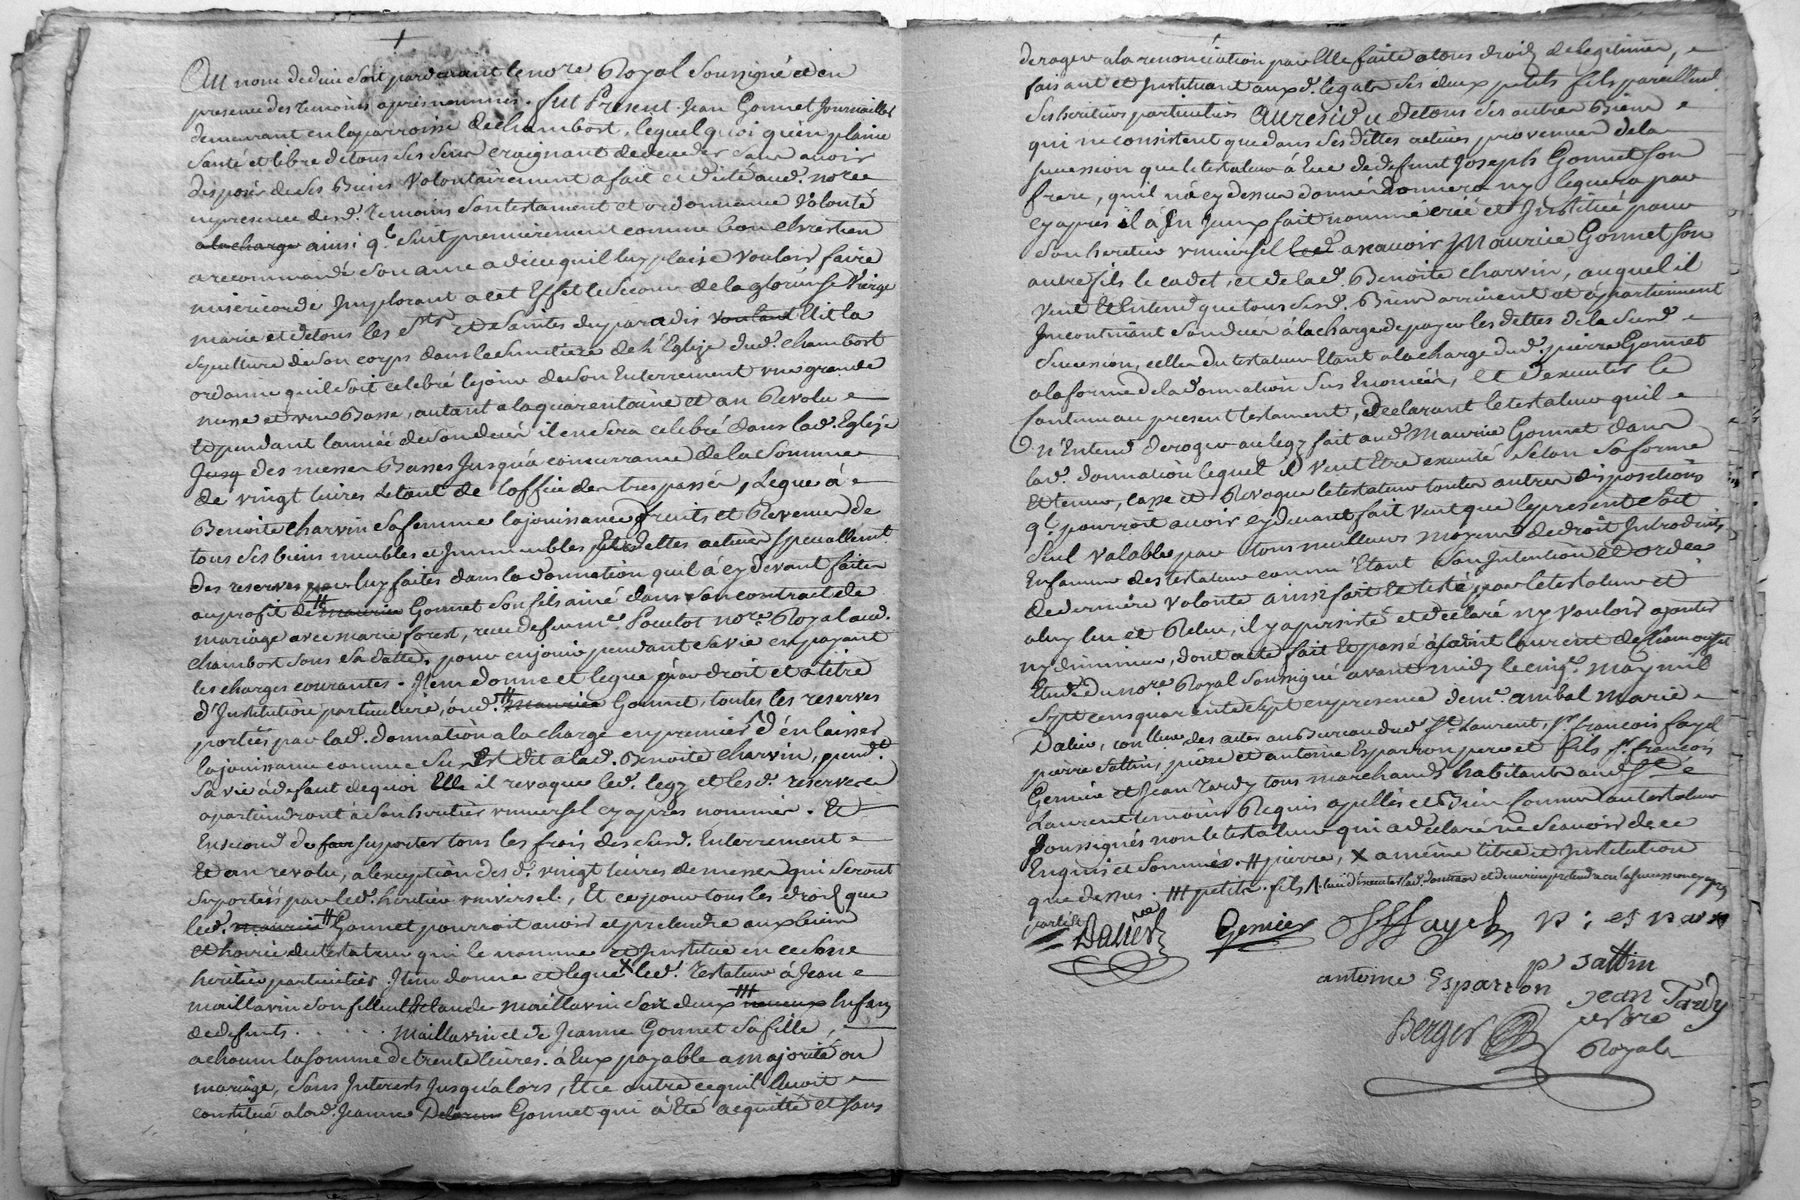 Au nom de dieu soit pardevant le nore Royal soussigné et en
presence des temoins apres nommés. fut Present Jean Gonnet Journaillier
demeurant en la parroisse de chambost, lequel quoi qu'en plaine
santé et libre de tous ses sens craignant de deceder sans avoir
disposer de ses Biens Volontairement a fait et dicté aud. nore
en presence desd. temoins son testament et ordonnance Volonté
a la charge ainsi q.e suit premierement comme bon chrestien
a recommandé son ame a dieu qu'il luy plaise Vouloir faire
misericorde Implorant a cet Effet le secours de la glorieuse Vierge
marie et de tous les Sts et saintes du paradis voulant Elit la
sepulture de son corps dans le simetiere de l'Eglize dud. chambost
ordonne qu'il soit celebré le jour de son Enterrement une grande
messe et une Basse, autant a la quarentaine et an Revolu
et pendant l'année de son decés il en sera celebré dans lad. Eglize
Jusq des messes Basses Jusqu'a concurrance de la somme
de vingt livres le tout de l'office des trespassés, Legue à
Benoite Charvin sa femme la jouissance fruits et Revenus de
tous ses biens meubles et Immeubles et dettes actives specialement
des reserves par luy faites dans la donnation qu'il à cy devant faite
au profit de # maurice Gonnet son fils ainé dans son contrait de
mariage avec marie forest, receu defunt me. Poulot nore. Royal aud.
chambost sous sa datte, pour en jouir pendant sa vie en payant
les charges courantes. Item donne et legue par droit et a titre
d'Institution particuliere, aud. # maurice Gonnet, toutes les reserves
portées par lad. donnation a la charge en premier d'en laisser
la jouissance comme sus Est dit a lad. Benoite charvin, pend.t
sa vie à defaut dequoi Elle il revoque led. legz et lesd. reserves
apartiendront à son heritier universel cy apres nommé. Et
En second de faire suporter tous les frais desusd. Enterrement
Et an revolu, a l'exception desd. vingt livres de messes qui seront
suportés par led. heritier universel, Et ce pour tous les droits que
led. maurice # Gonnet pourroit avoir et pretendre aux biens
et hoirie du testateur qui le nomme et Institue en ce son
heritier particulier. Item donne et legue X led. Testateur à Jean
maillavin son filleul et claude maillavin ses deux ### neveux Enfans
de defunts . . . . . . Maillavin et de Jeanne Gonnet sa fille,
a chacun la somme de trente livres à Eux payable a majorité ou
mariage, sans Interests Jusqu'alors, Et ce outre ce qu'il Avoit
constitué a lad. Jeanne Gonnet qui à été acquitté Et sans
deroger a la renonciation par Elle faite a tous droits de legitime,
faisant et Instituant auxd. legats ses deux petits fils pareillement
ses heritiers particuliers Au residu de tous ses autres Biens
qui ne consistent que dans ses dettes actives provenues de la
succession que le testateur à Eue de defunt Joseph Gonnet son
frere, qu'il n'a cy dessus donné donnera ny leguera par
cy apres il a fait nommé créé et Institué pour
son heritier universel a scavoir Maurice Gonnet son
autre fils le cadet, et de lad. Benoite charvin, auquel il
veut Et Entend que tous sesd. Biens arrivent et apartiennent
Incontinant son decés à la charge de payer les dettes de la susd.
sucession, celles du testateur Etant a la charge dud. pierre Gonnet
a la forme de la donnation sus Enoncée, Et d'executer le
contenu au present testament, declarant le testateur qu'il
n'Entend deroger au legz fait aud. Maurice Gonnet dans
lad. donnation lequel il veut Etre executé selon sa forme
Et teneur, casse et Revoque le testateur toutes autres dispositions
q.l pourroit avoir cy devant fait veut que le present soit
seul valable par tous meilleurs moyens de droit Introduits
En faveur des testateurs comme Etant son Intention et ordce
de derniere volonté ainsi fait et testé par le testateur et
a luy lu et Relu, il y a persisté et declaré ny vouloir ajouter
ny diminuer, dont acte fait Et passé à saint Laurent de Chamousset
Etude du nore. Royal soussigné avant midy le cinq.e may mil
sept cens quarente sept en presence de me. anibal marie
Dalier, conlleur des actes au Bureau dud. St. Laurent, sr. francois fayel
pierre sattin, pierre et antoine Esparron pere et fils sr. francois
Genier et Jean Tardy tous marchands habitants aud. St.
Laurent temoins Requis apellés et Bien connus au testateur
soussignés non le testateur qui a declaré ne scavoir de ce
Enquis et sommés. # pierre, X a même titre et Institution
que dessus. ### petits fils
Dalier Genier Fayel p : esparron
p sattin
antoine Esparron Jean Tardy
Berger nore
Royal